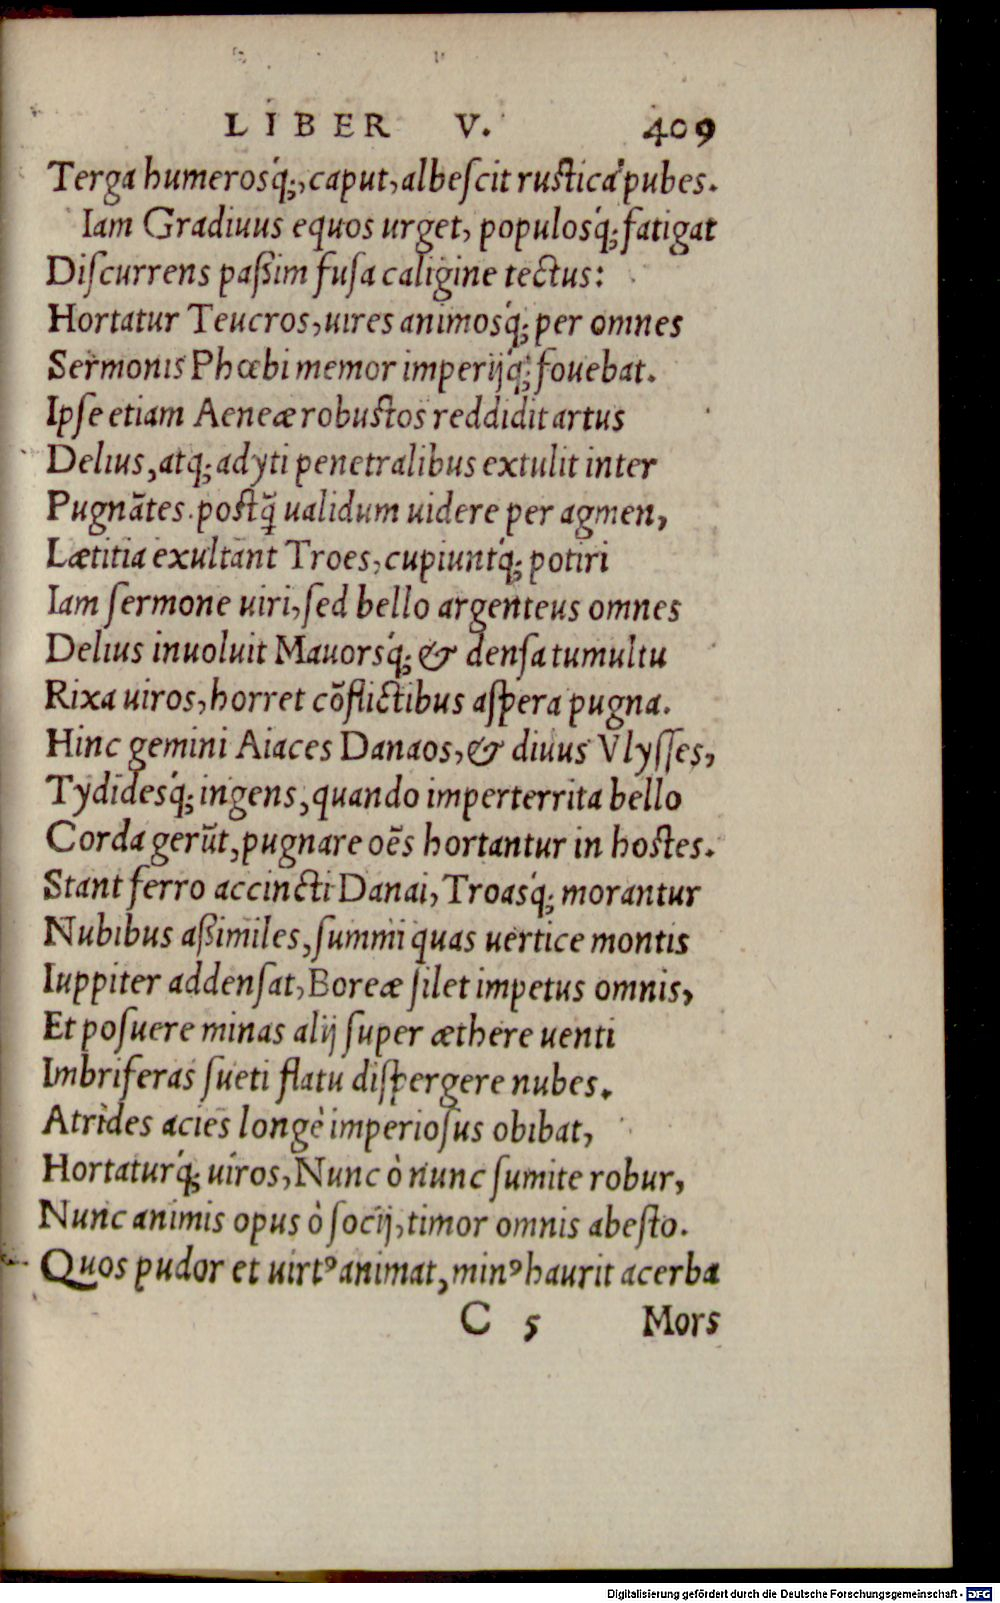 LIBER V. 409
Terga humerosq́;, caput, albeſcit ruſtica pubes.
Iam Gradiuus equos urget, populosq́; fatigat
Diſcurrens paßim fuſa caligine tectus:
Hortatur Teucros, uires animosq́; per omnes
Sermonis Phœbi memor imperijq́; fouebat.
Ipſe etiam Aeneæ robuſtos reddidit artus
Delius, atq; adyti penetralibus extulit inter
Pugnãtes. poſtq̃ ualidum uidere per agmen,
Lætitia exultant Troes, cupiuntq́; potiri
Iam ſermone uiri, ſed bello argenteus omnes
Delius inuoluit Mauorsq́; & denſa tumultu
Rixa uiros, horret cõflictibus aſpera pugna.
Hinc gemini Aiaces Danaos, & diuus Vlyſſes,
Tydidesq́; ingens, quando imperterrita bello
Corda gerũt, pugnare oẽs hortantur in hoſtes.
Stant ferro accincti Danai, Troasq́; morantur
Nubibus aßimiles, ſummi quas uertice montis
Iuppiter addenſat, Boreæ ſilet impetus omnis,
Et poſuere minas alij ſuper æthere uenti
Imbriferas ſueti flatu diſpergere nubes.
Atrides acies longè imperioſus obibat,
Hortaturq́; uiros, Nunc ò nunc ſumite robur,
Nunc animis opus ò ſocij, timor omnis abeſto.
Quos pudor et uirtꝰ animat, minꝰ haurit acerba
C 5 Mors
Digitalisierung gefördert durch die Deutsche Forschungsgemeinschaft - DFG